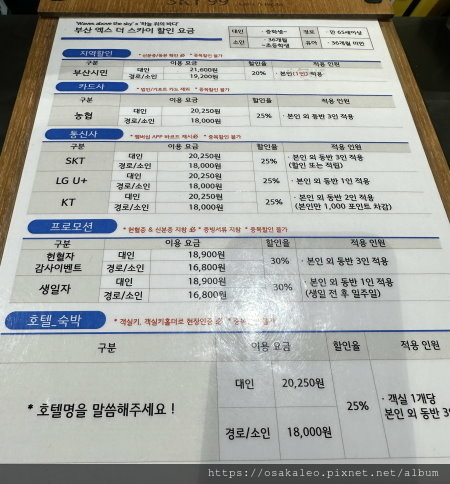 "Waves above the sky" x '하늘 위의 바다'
부산 엑스 더 스카이 할인 요금
대인 · 중학생~ 경로 · 만 65세이상
소인 · 36개월 ~초등학생 유아 · 36개월 미만
지역할인
구분 이용 요금 할인율 적용 인원
부산시민 대인 21,600원 20% · 본인(1인) 적용
경로/소인 19,200원
카드사 * 중복할인 불가
구분 이용 요금 할인율 적용 인원
농협 대인 20,250원 25% · 본인 외 동반 3인 적용
경로/소인 18,000원
통신사 * 멤버십 APP 바코드 제시必 * 중복할인 불가
구분 이용 요금 할인율 적용 인원
SKT 대인 20,250원 25% · 본인 외 동반 3인 적용
경로/소인 18,000원 (할인 또는 적립)
LG U+ 대인 20,250원 25% · 본인 외 동반 1인 적용
경로/소인 18,000원
KT 대인 20,250원 25% · 본인 외 동반 2인 적용
경로/소인 18,000원 (본인만 1,000 포인트 차감)
프로모션 * 헌혈증 & 신분증 지참 必 * 증빙서류 지참 * 중복할인 불가
구분 이용 요금 할인율 적용 인원
헌혈자 대인 18,900원 30% · 본인 외 동반 3인 적용
감사이벤트 경로/소인 16,800원
생일자 대인 18,900원 30% · 본인 외 동반 1인 적용
경로/소인 16,800원 (생일 전 후 일주일)
호텔_숙박 * 객실키, 객실키홀더로 현장인증 必 * 중복할인 불가
구분 이용 요금 할인율 적용 인원
* 호텔명을 말씀해주세요 ! 대인 20,250원 25% · 객실 1개당
경로/소인 18,000원 본인 외 동반 3
https://osakaleo.pixnet.net/album